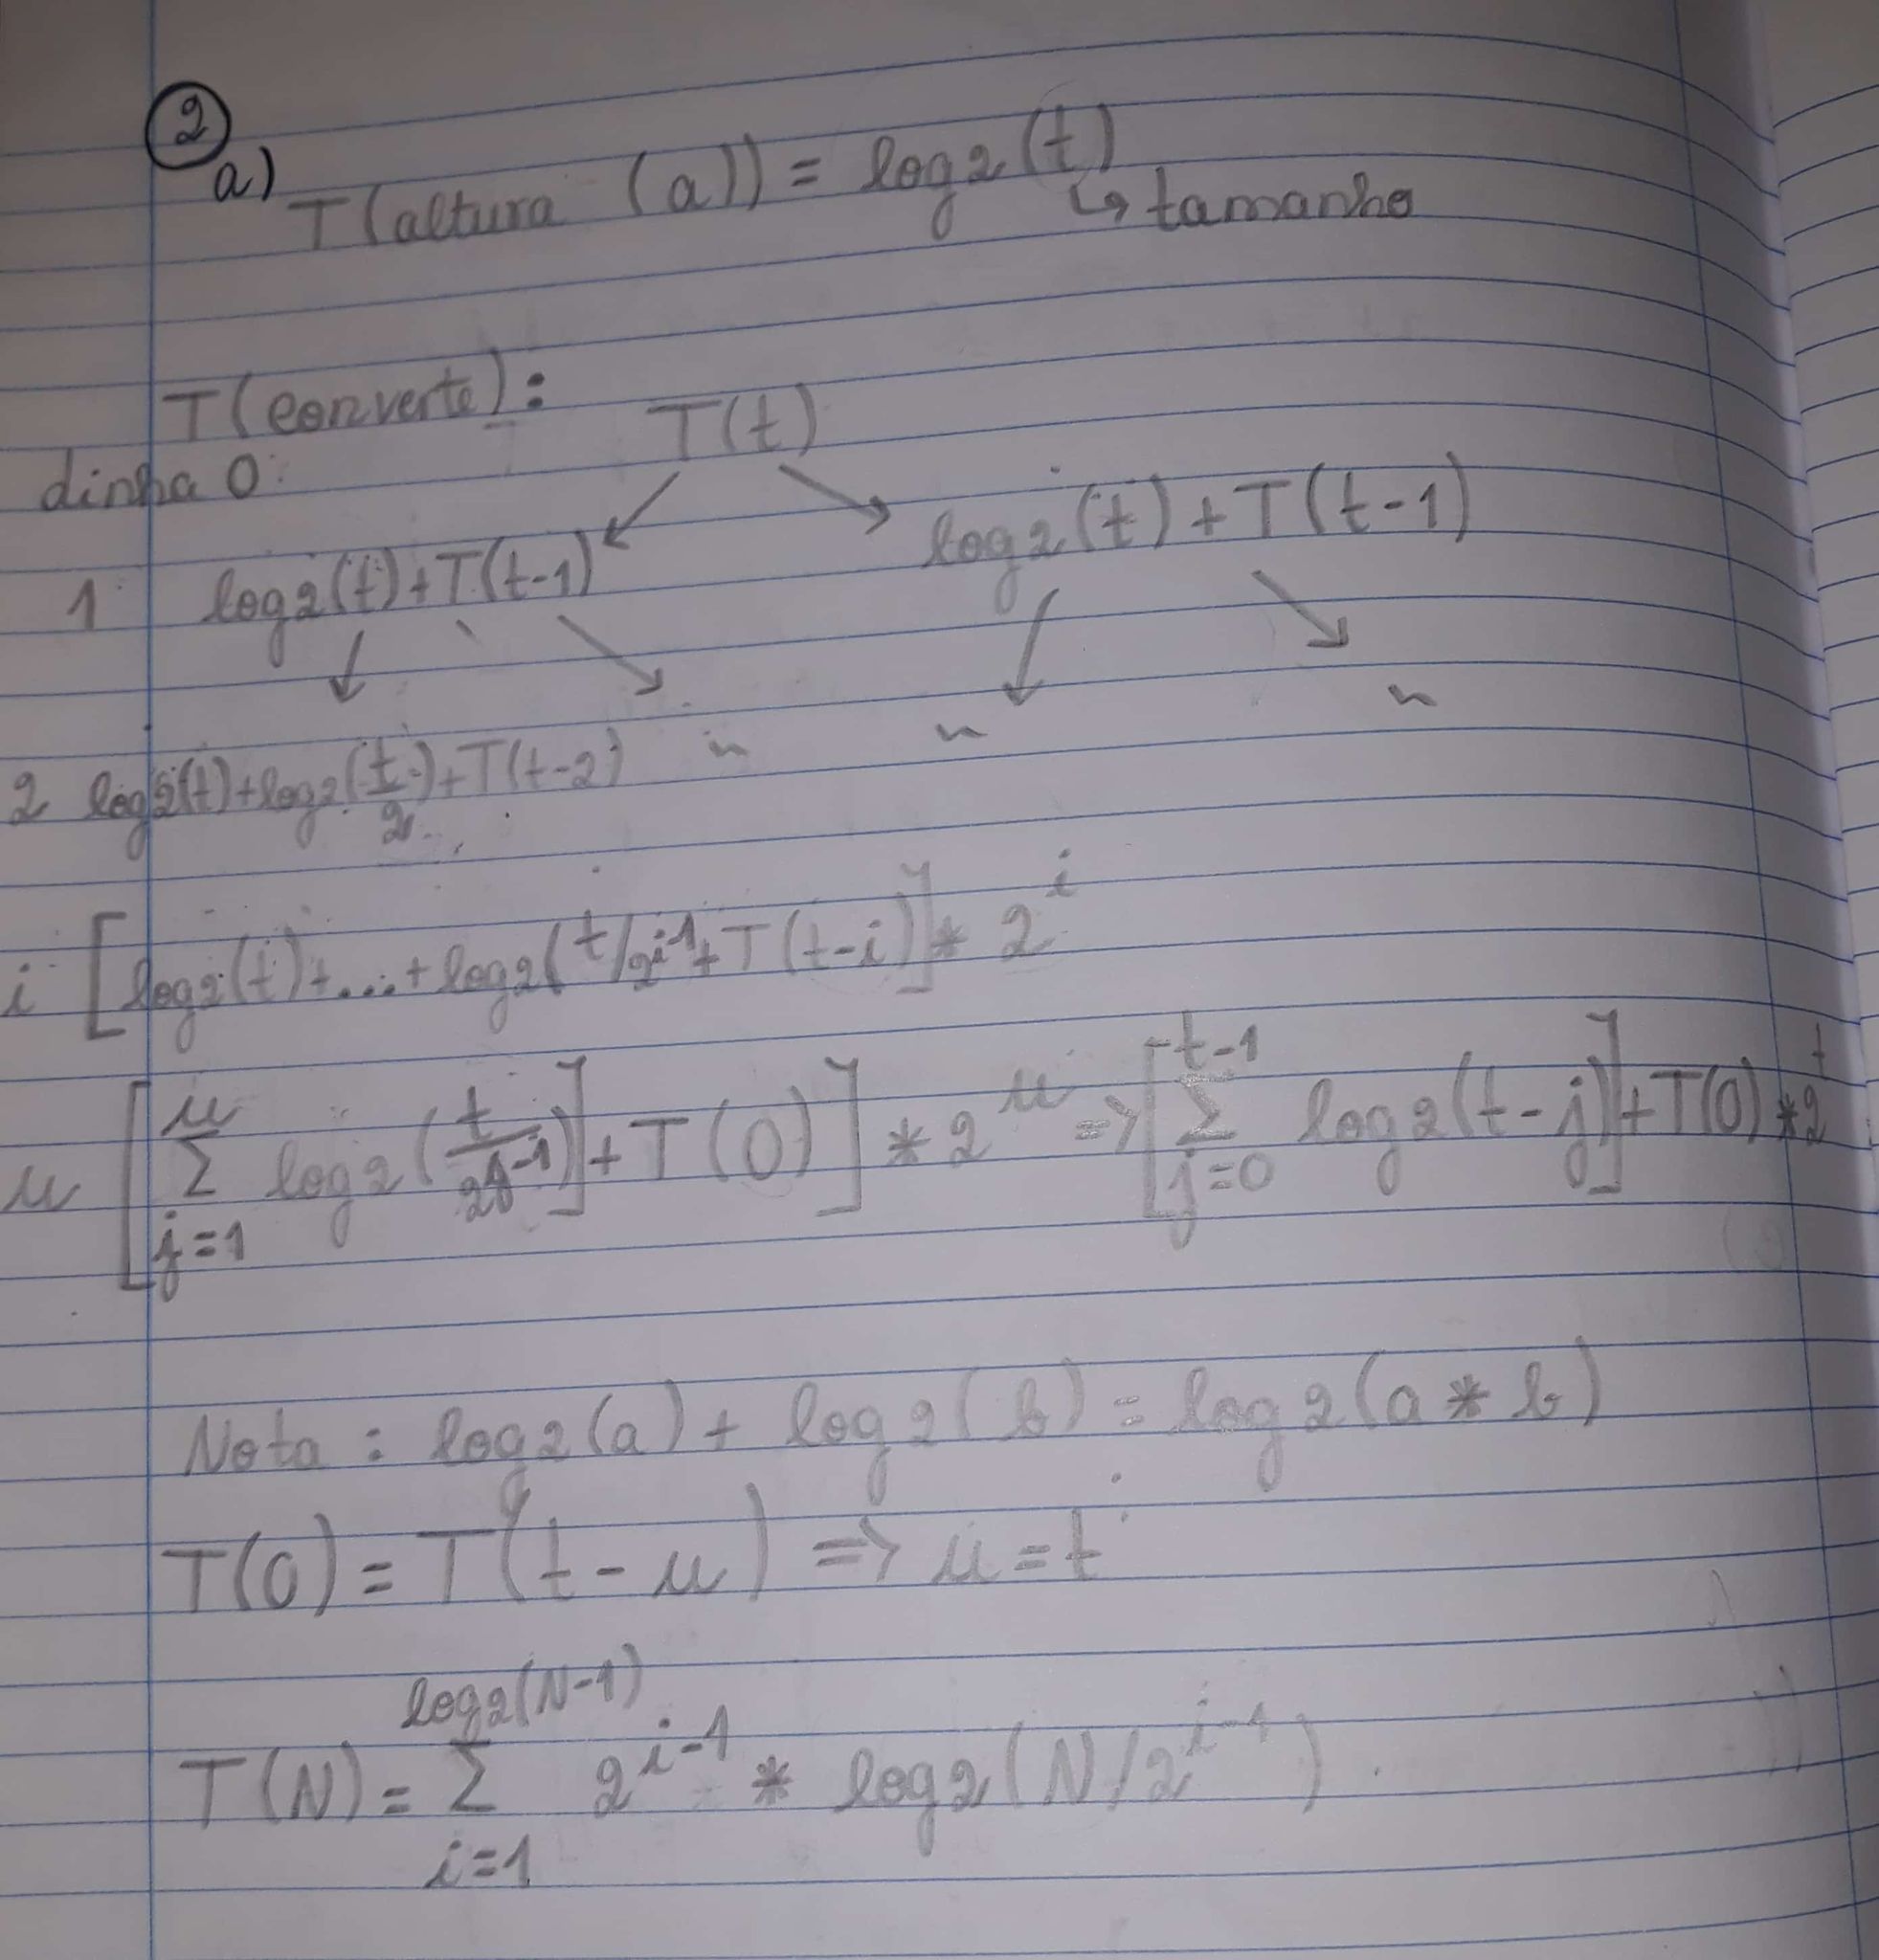 2
a) T(altura (a)) = log2(t)
↳ tamanho
T(converte):
T(t)
linha 0:
log2(t) + T(t-1)
1 log2(t) + T(t-1)
2 log2(t) + log2(t/2) + T(t-2) " " "
i [log2(t) + ... + log2(t/2^i-1 + T(t-i)] * 2^i
u [Σ j=1 u log2(t/2^j-1)] + T(0)] * 2^u => [Σ j=0 t-1 log2(t-j)] + T(0) * 2^t
Nota : log2(a) + log2(b) = log2(a * b)
T(0) = T(t-u) => u = t
T(N) = Σ i=1 log2(N-1) 2^i-1 * log2(N/2^i-1)